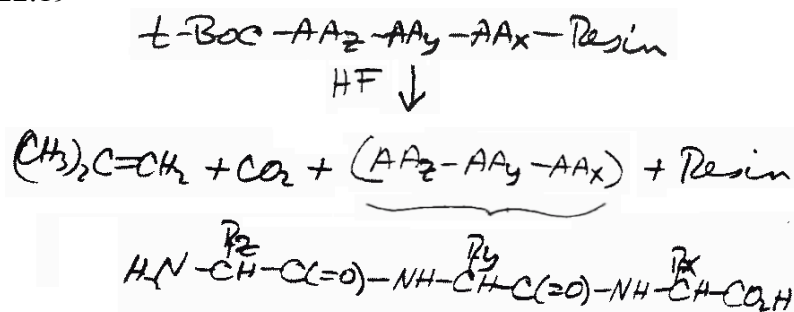 t-Boc-AAz-AAy-AAx-Resin
HF ↓
(CH3)2C=CH2 + CO2 + (AAz-AAy-AAx) + Resin
Rz Ry Rx
H2N-CH-C(=O)-NH-CH-C(=O)-NH-CH-CO2H